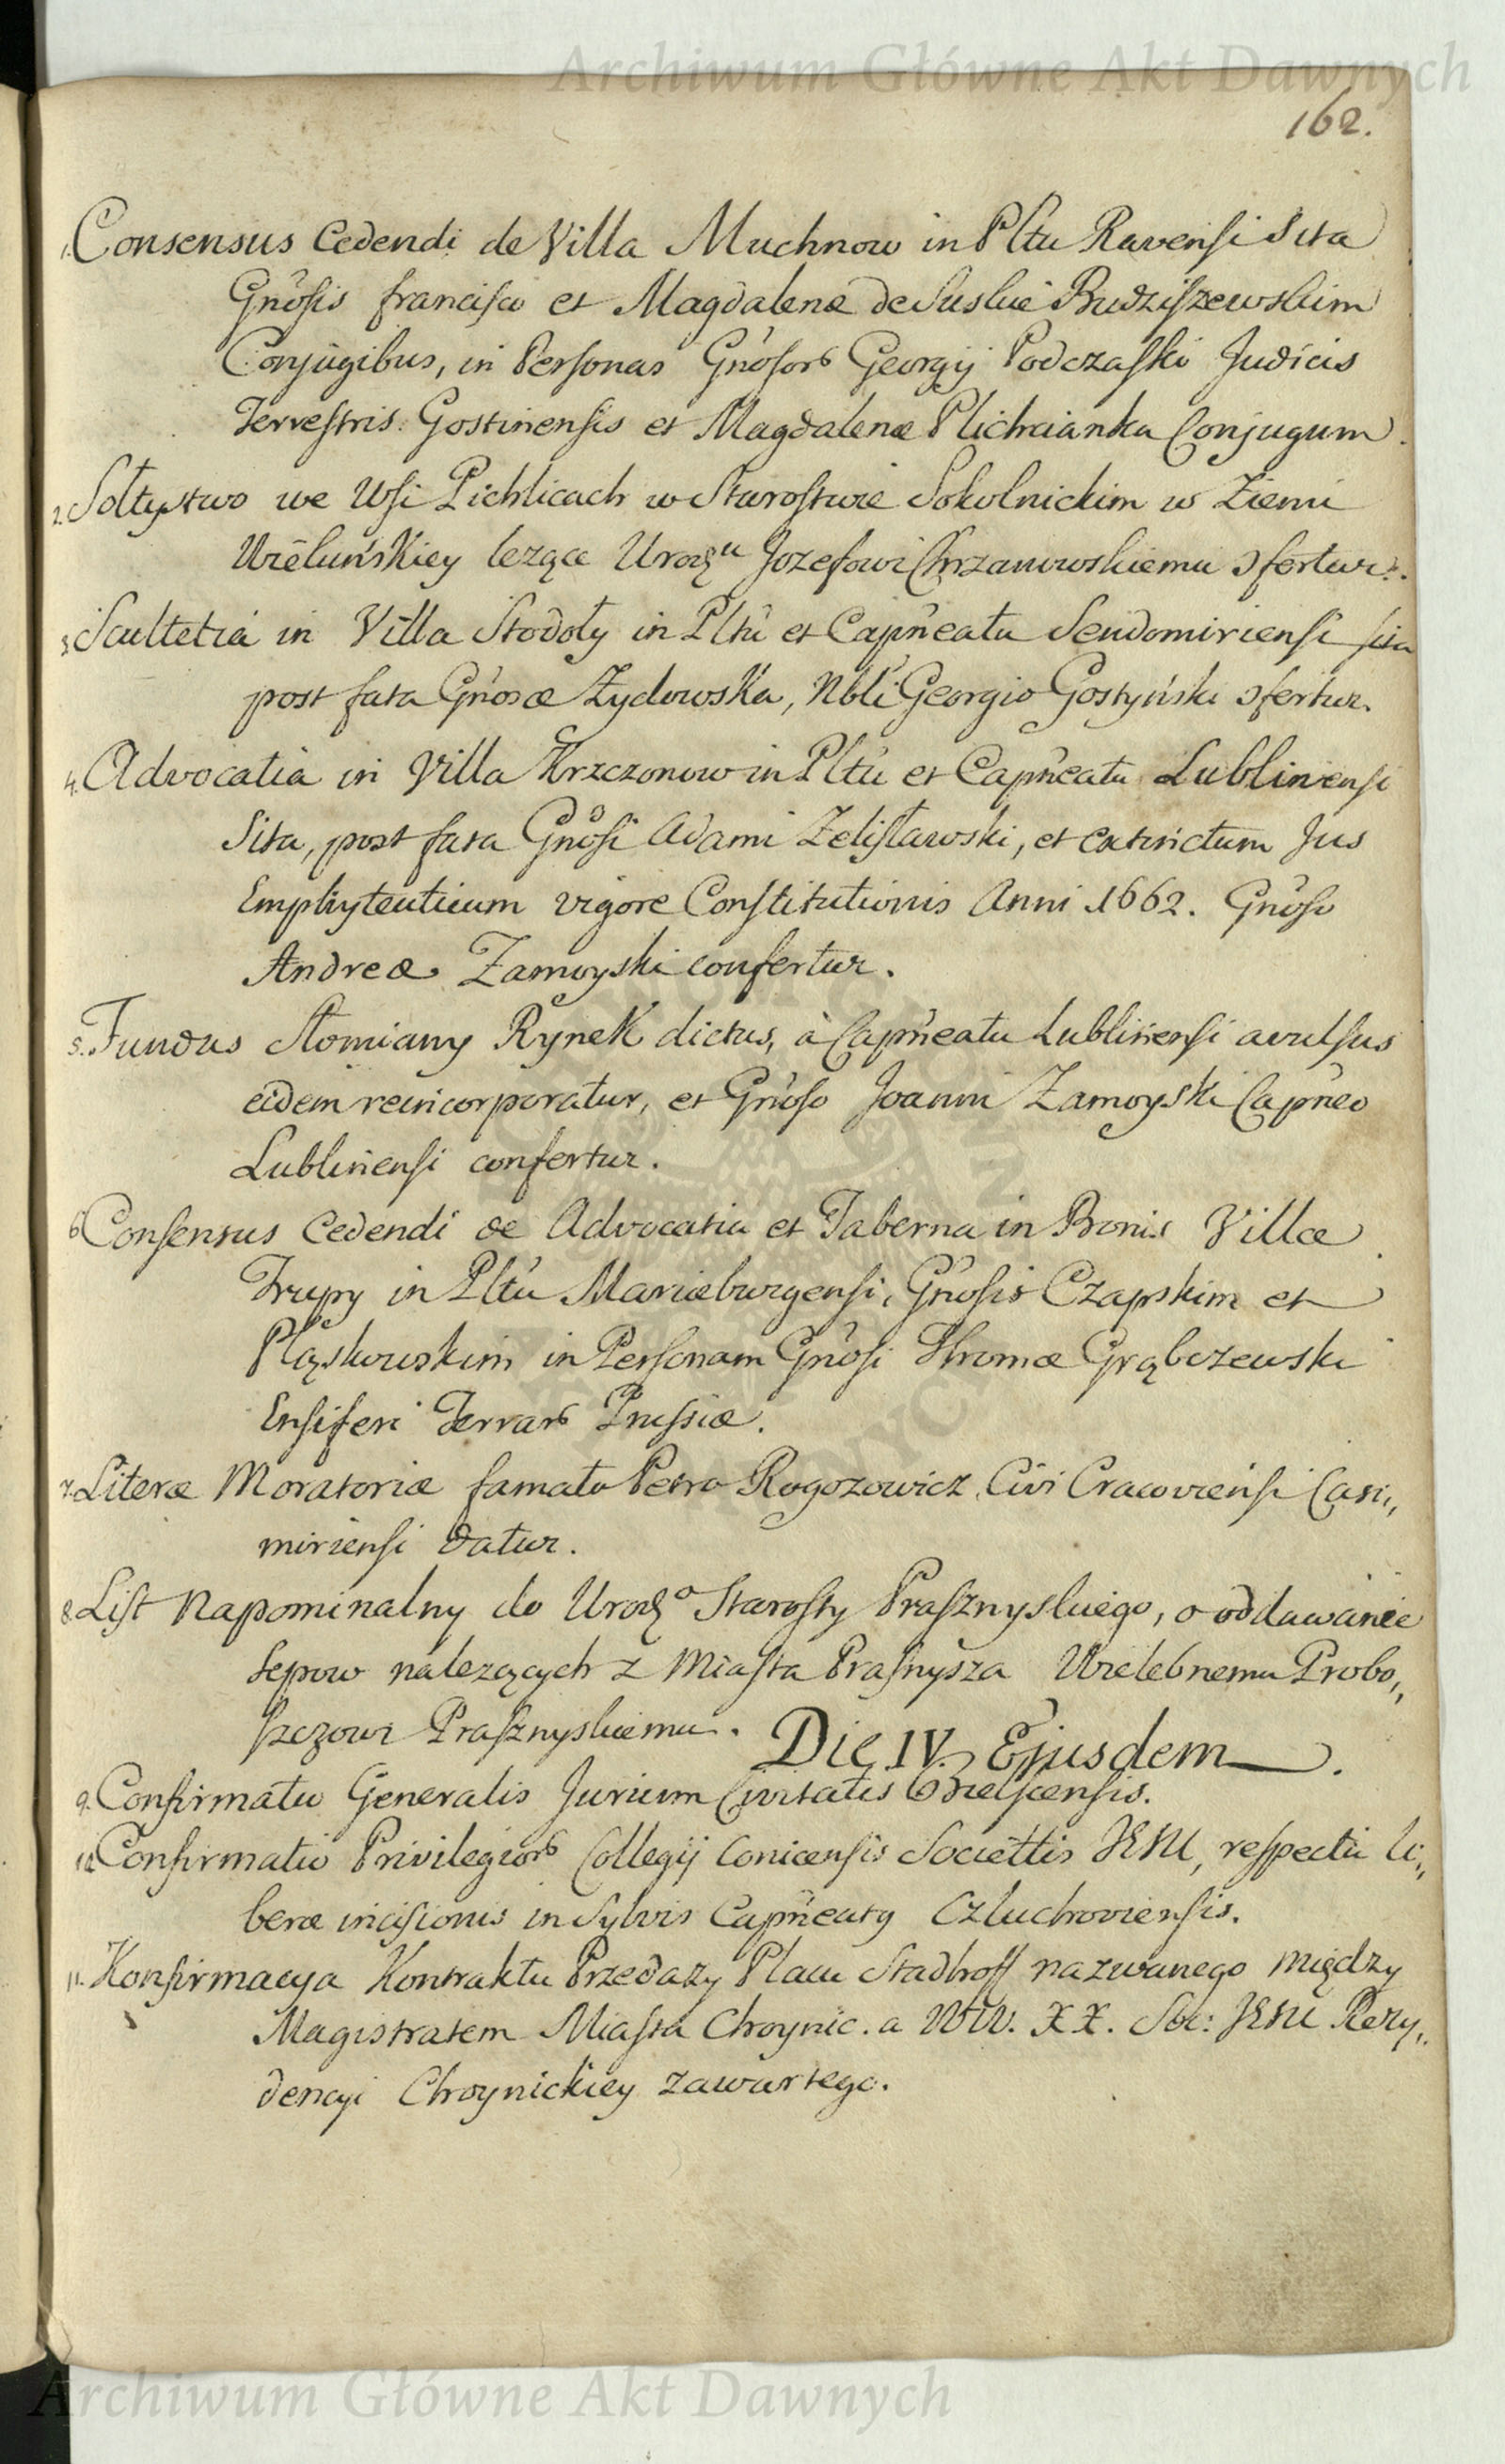 Archiwum Główne Akt Dawnych
162.
1. Consensus Cedendi de Villa Muchnow in Pltu Ravensi Sita
Gnosis Francisco et Magdalenæ de Suskie Budziszewskim
Conjugibus, in Personas Gnosorb Georgij Podczaski Judicis
Terrestris Gostinensis et Magdalenæ Plichcianka Conjugum.
2. Sołtystwo we Wsi Pichlicach w Starostwie Sokolnickim w Ziemi
Wieluńskiey lezące Urodzu Jozefowi Chrzanowskiemu ɔfertur.
3. Scultetia in Villa Stodoły in Pltu et Capneatu Sendomiriensi sita
post fata Gnosæ Zydowska, Nbli Georgio Gostyński ɔfertur.
4. Advocatia in Villa Krzczonow in Pltu et Capneatu Lublinensi
Sita, post fata Gnosi Adami Zelisławski, et extinctum Jus
Emphyteuticum vigore Constitutionis Anni 1662. Gnoso
Andreæ Zamoyski confertur.
5. Fundus Słomiany Rynek dictus, à Capneatu Lublinensi avulsus
eidem reincorporatur, et Gnoso Joanni Zamoyski Capneo
Lublinensi confertur.
6. Consensus Cedendi de Advocatia et Taberna in Bonis Villæ
Trupy in Pltu Mariæburgensi, Gnosis Czapskim et
Pląskowskim in Personam Gnosi Thomæ Grąbczewski
Ensiferi Terrarb Prussiæ.
7. Literæ Moratoriæ famato Petro Rogozowicz Civi Cracoviensi Casi„
miriensi datur.
8. List Napominalny do Urodzo Starosty Prasznyskiego, o oddawanie
Sepow nalezących z Miasta Prasnysza Wielebnemu Probo„
szczowi Prasznyskiemu.
Die IV. Ejusdem.
9. Confirmatio Generalis Jurium Civitatis Bielscensis.
10. Confirmatio Privilegiorb Collegij Conicensis Societtis JESU, respectu li„
beræ incisionis in Sylvis Capneatq Czluchoviensis.
11. Konfirmacya Kontraktu Przedazy Placu Stadhoff nazwanego między
Magistratem Miasta Choynic. a WW. XX. Soc: JESU Rezy„
dencyi Choynickiey zawartego.
Archiwum Główne Akt Dawnych